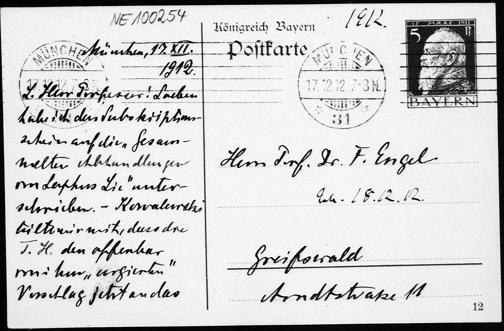 NE100254
1912.
Königreich Bayern
Postkarte
MÜNCHEN
17.12.12.7-8N.
31
5
BAYERN
München, 17. XII.
1912.
L. Herr Professor! Soeben
habe ich den Subskriptions-
schein auf die „Gesam-
melten Abhandlungen
von Sophus Lie" unter-
schrieben. – Kowalewski
teilt mir mit, dass die
T. H. den offenbar
von ihm „urgierten"
Vorschlag jetzt an das
Herrn Prof. Dr. F. Engel
18.12.12.
Greifswald
Arndtstraße 11
12